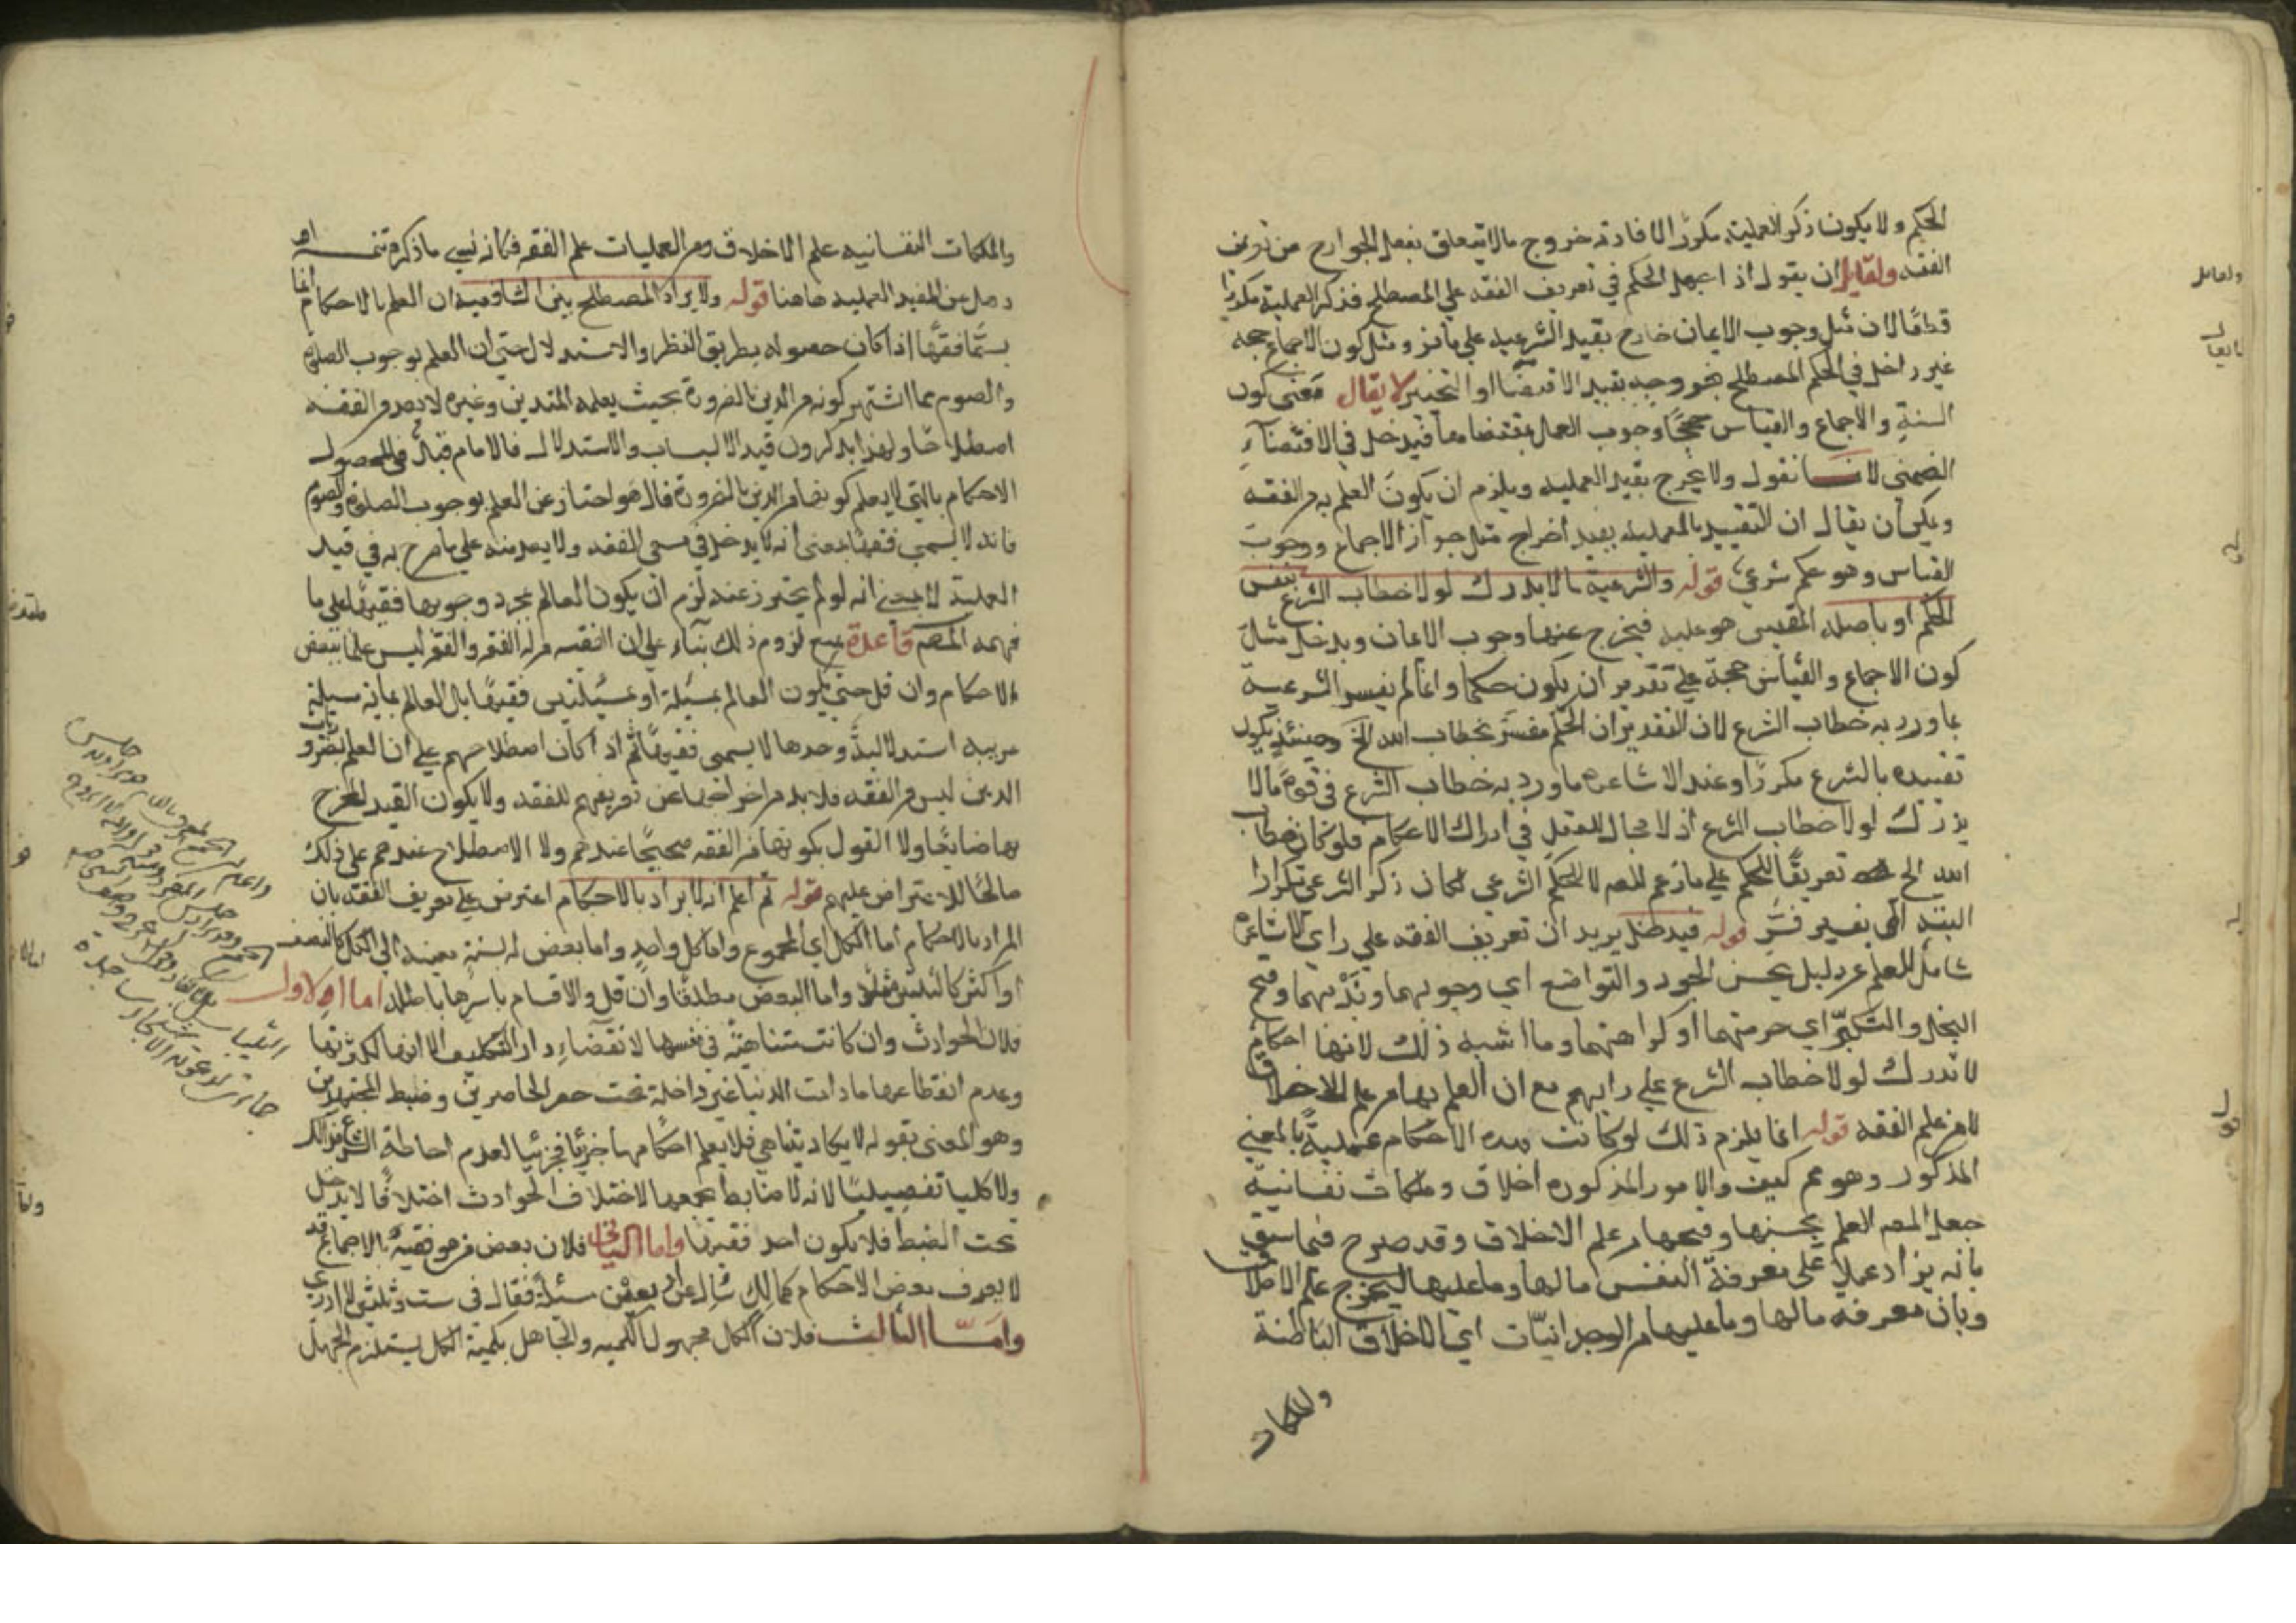 الحكم ولا يكون ذكر العملية مكررا لافادته خروج ما لا يتعلق بفعل الجوارح من تعريف
الفقه ولقايل ان يقول اذا اجعل الحكم في تعريف الفقه علي المصطلح فذكر العملية مكررا
قطعا لان مثل وجوب الايمان خارج بقيد الشرعيه علي ما مر ومثل كون الاجماع حجه
غير داخل في الحكم المصطلح بخروجه بقيد الاقتضا او التخيير لا يقال فمعني كون
السنة والاجماع والقياس حججا وجوب العمل بمقتضاها فيدخل في الاقتضاء
الضمني لانا نقول ولا يخرج بقيد العمليه ويلزم ان يكون العلم به من الفقه
ويمكن ان يقال ان التقييد بالعملية يفيد اخراج مثل جواز الاجماع ووجوب
القياس وهو حكم شرعي قوله والشرعية ما لا يدرك لولا خطاب الشرع بنفس
الحكم او باصله المقيس هو عليه فيخرج عنها وجوب الايمان ويدخل مثل
كون الاجماع والقياس حجة علي تقدير ان يكون حكما وانما لم يفسر الشرعية
بما ورد به خطاب الشرع لان التقدير ان الحكم مفسر بخطاب الله الخ وحينئذ يكون
تقييده بالشرع مكررا وعند الاشاعره ما ورد به خطاب الشرع في قوة ما لا
يدرك لولا خطاب الشرع اذ لا مجال للعقل في ادراك الاحكام فلو كان خطاب
الله الخ تعريفا للحكم علي ما زعم المص لا للحكم الشرعي لكان ذكر الشرعي تكرارا
البتة اي بتفسير فسر قوله فيدخل يريد ان تعريف الفقه علي راي الاشاعرة
شامل للعلم عن دليل بحسن الجود والتواضع اي وجوبهما وندبهما وقبح
البخل والتكبر اي حرمتهما او كراهتهما وما اشبه ذلك لانها احكام
لا تدرك لولا خطاب الشرع علي رايهم مع ان العلم بها من علم الاخلاق
لا من علم الفقه قوله انما يلزم ذلك لو كانت هذه الاحكام عملية بالمعني
المذكور وهو مم كيف والامور المذكورة اخلاق وملكات نفسانية
جعل المص العلم بحسنها وقبحها من علم الاخلاق وقد صرح فيما سبق
بانه يزاد عملا علي معرفة النفس ما لها وما عليها ليخرج علم الاخلاق
وبان معرفة ما لها وما عليها من الوجدانيات اي الاخلاق الباطنة
والملكات
والملكات النفسانيه علم الاخلاق ومن العمليات علم الفقه فكانه نسي ما ذكره ثمه او
ذهل عن المفيد العمليه هاهنا قوله ولا يزاد المصطلح بين الشافعية ان العلم بالاحكام انما
يسمي فقها اذا كان حصوله بطريق النظر والاستدلال حتي ان العلم بوجوب الصلوة
والصوم مما اشتهر كونه من الدين بالضرورة بحيث يعلمه المتدين وغيره لا يعد من الفقه
اصطلاحا ولهذا يذكرون قيد الاكتساب والاستدلال فالامام قيد في المحصول
الاحكام بالتي لا يعلم كونها من الدين بالضرورة قال هو احتراز عن العلم بوجوب الصلوة والصوم
فانه لا يسمي فقها بمعني انه لا يدخل في مسمي الفقه ولا يعد منه علي ما صرح به في قيد
العملية لا بمعني انه لو لم يحترز عنه لزم ان يكون العالم بمجرد وجوبها فقيها علي ما
فهمه المص قاعدة منع لزوم ذلك بناء علي ان الفقيه من له الفقه والفقه ليس علما ببعض
الاحكام وان قل حتي يكون العالم بمسئلة او مسئلتين فقيها بل العالم بماية مسيلة
غريبه استدلالية وحدها لا يسمي فقيها ثم اذا كان اصطلاحهم علي ان العلم بضروريات
الدين ليس من الفقه فلا بد من اخراجها عن تعريفهم للفقه ولا يكون القيد المخرج
بها ضايعا ولا القول بكونها من الفقه صحيحا عندهم ولا الاصطلاح عندهم علي ذلك
صالحا للاعتراض عليهم قوله ثم اعلم انه لا يراد بالاحكام اعترض علي تعريف الفقه بان
المراد بالاحكام اما الكل اي المجموع واما كل واحد واما بعض له نسبة معينة الي الكل كالنصف
او اكثر كالثلثين مثلا واما البعض مطلقا وان قل والاقسام باسرها باطلة اما الاول
فلان الحوادث وان كانت متناهية في نفسها لانقضاء دار التكليف الا انها لكثرتها
وعدم انقطاعها ما دامت الدنيا غير داخلة تحت حصر الحاصرين وضبط المجتهدين
وهو المعني بقوله لا يكاد يتناهي فلا يعلم احكامها جزئيا فجزئيا لعدم احاطة البشر بذلك
ولا كليا تفصيليا لانه لا ضابط يجمعها لاختلاف الحوادث اختلافا لا يدخل
تحت الضبط فلا يكون احد فقيها واما الثاني فلان بعض من هو فقيه بالاجماع قد
لا يعرف بعض الاحكام كمالك سئل عن اربعين مسئلة فقال في ست وثلثين لا ادري
واما الثالث فلان الكل مجهول الكميه والجاهل بكمية الكل يستلزم الجهل